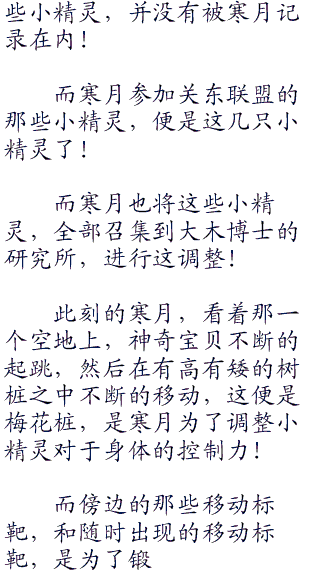 些小精灵，并没有被寒月记
录在内！
而寒月参加关东联盟的
那些小精灵，便是这几只小
精灵了！
而寒月也将这些小精
灵，全部召集到大木博士的
研究所，进行这调整！
此刻的寒月，看着那一
个空地上，神奇宝贝不断的
起跳，然后在有高有矮的树
桩之中不断的移动，这便是
梅花桩，是寒月为了调整小
精灵对于身体的控制力！
而傍边的那些移动标
靶，和随时出现的移动标
靶，是为了锻